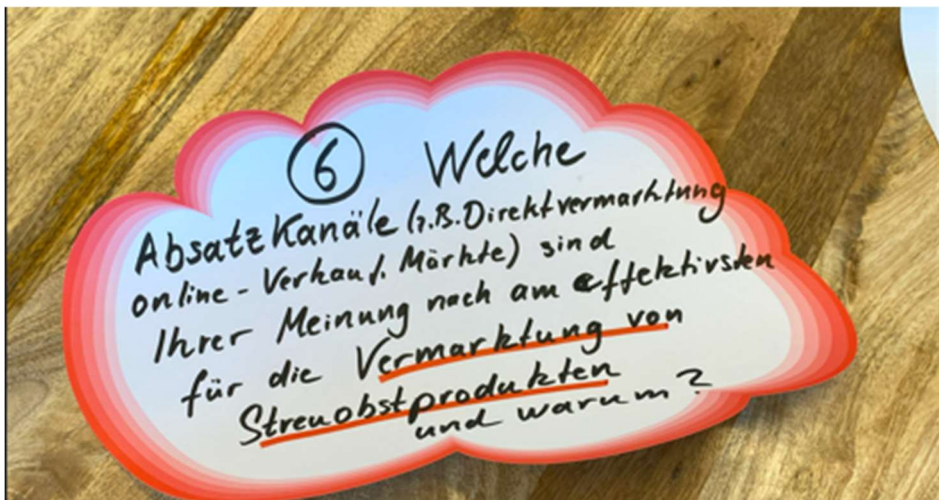 6 Welche
Absatzkanäle (z.B. Direktvermarktung
online - Verkauf, Märkte) sind
Ihrer Meinung nach am effektivsten
für die Vermarktung von
Streuobstprodukten
und warum?